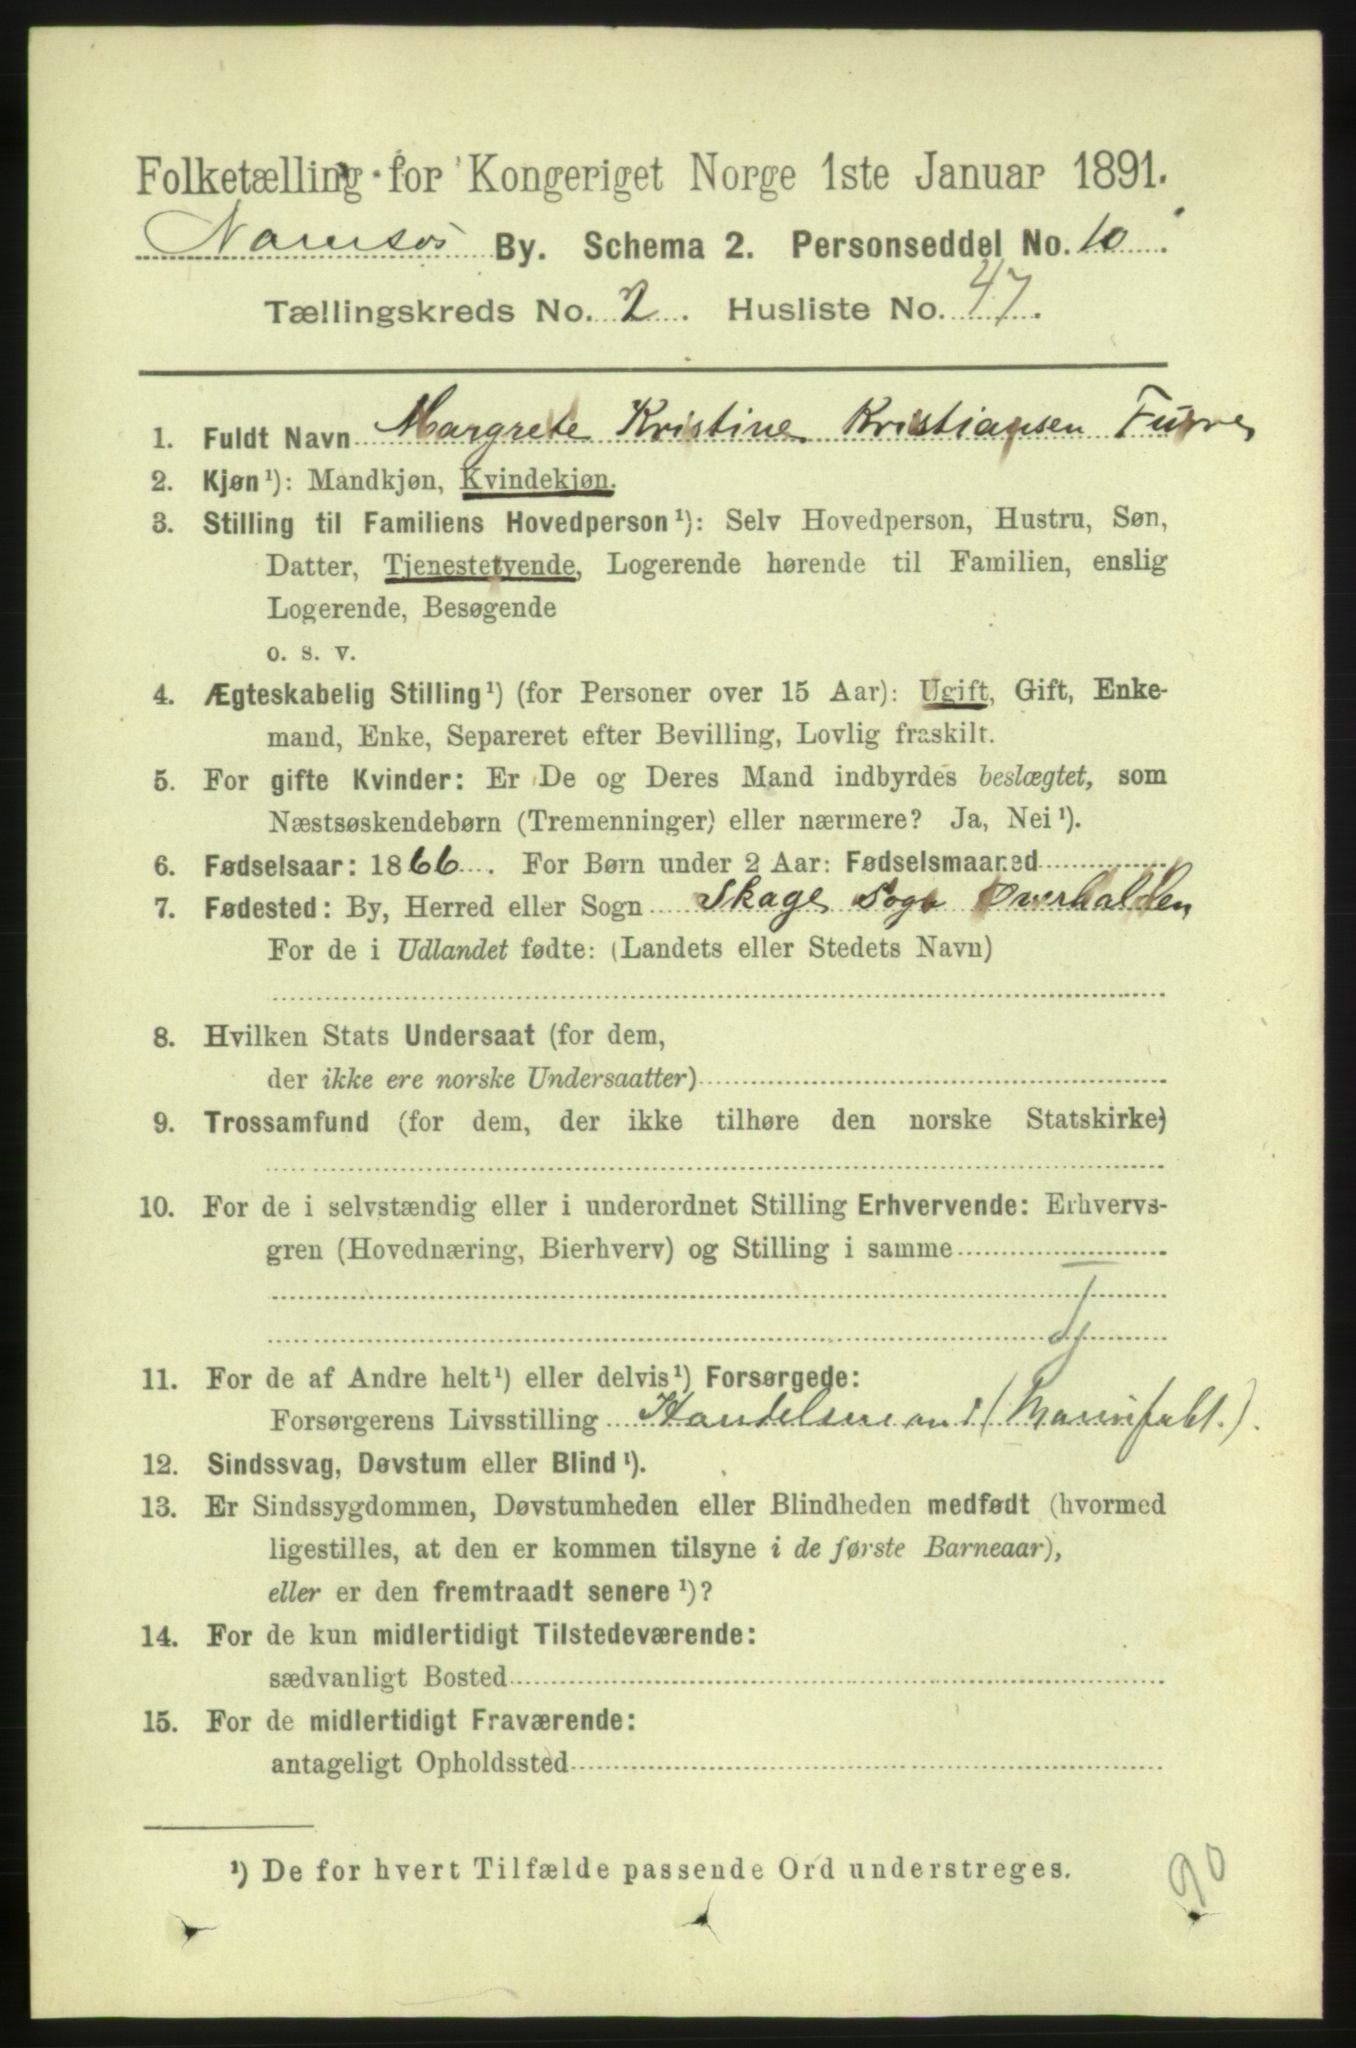 Folketælling for Kongeriget Norge 1ste Januar 1891.
Namsos By. Schema 2. Personseddel No. 10.
Tællingskreds No. 2. Husliste No. 47.
1. Fuldt Navn Margrete Kristine Kristiansen Furre
2. Kjøn¹): Mandkjøn, Kvindekjøn.
3. Stilling til Familiens Hovedperson¹): Selv Hovedperson, Hustru, Søn,
Datter, Tjenestetyende, Logerende hørende til Familien, enslig
Logerende, Besøgende
o. s. v.
4. Ægteskabelig Stilling¹) (for Personer over 15 Aar): Ugift, Gift, Enke-
mand, Enke, Separeret efter Bevilling, Lovlig fraskilt.
5. For gifte Kvinder: Er De og Deres Mand indbyrdes beslægtet, som
Næstsøskendebørn (Tremenninger) eller nærmere? Ja, Nei¹).
6. Fødselsaar: 1866. For Børn under 2 Aar: Fødselsmaaned
7. Fødested: By, Herred eller Sogn Skage Sogn Overhalden
For de i Udlandet fødte: (Landets eller Stedets Navn)
8. Hvilken Stats Undersaat (for dem,
der ikke ere norske Undersaatter)
9. Trossamfund (for dem, der ikke tilhøre den norske Statskirke)
10. For de i selvstændig eller i underordnet Stilling Erhvervende: Erhvervs-
gren (Hovednæring, Bierhverv) og Stilling i samme
Tj
11. For de af Andre helt¹) eller delvis¹) Forsørgede:
Forsørgerens Livsstilling Handelsmand
12. Sindssvag, Døvstum eller Blind¹).
13. Er Sindssygdommen, Døvstumheden eller Blindheden medfødt (hvormed
ligestilles, at den er kommen tilsyne i de første Barneaar),
eller er den fremtraadt senere¹)?
14. For de kun midlertidigt Tilstedeværende:
sædvanligt Bosted
15. For de midlertidigt Fraværende:
antageligt Opholdssted
¹) De for hvert Tilfælde passende Ord understreges.
90